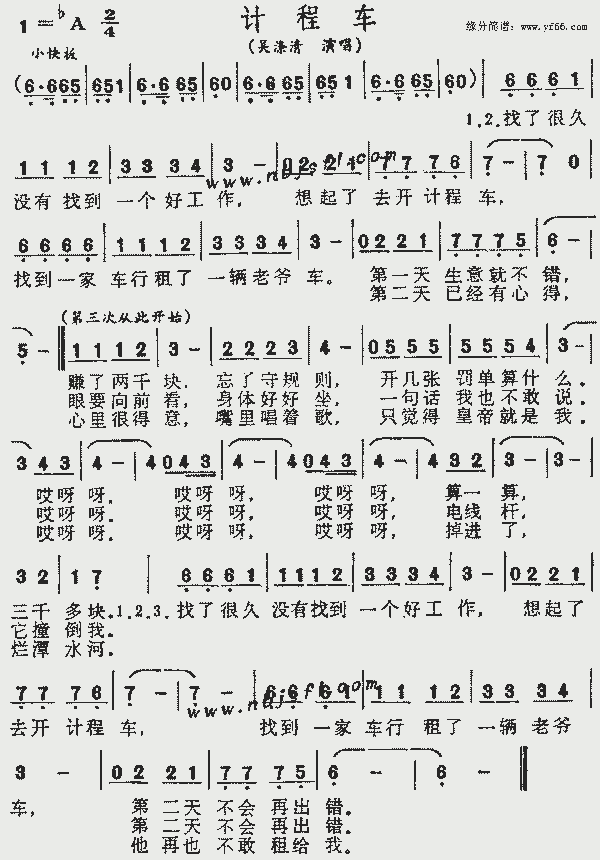 计程车
缘分简谱：www.yf66.com
1=♭A 2/4
(吴涤清 演唱)
小快板
(6·665 651 6·665 60 6·665 651 6·665 60) 6661
1.2.找了很久
11 12 33 34 3 - 02 21 77 76 7 - 7 0
没有 找到 一个 好工 作, 想起了 去开 计程 车,
6666 1112 3334 3- 0221 7775 6-
找到一家 车行租了 一辆老爷 车。 第一天 生意就不 错,
第二天 已经有心 得,
(第三次从此开始)
5- 1112 3- 2223 4- 0555 5554 3-
赚了两千 块, 忘了守规 则, 开几张 罚单算什 么。
眼要向前 看, 身体好好 坐, 一句话 我也不敢 说。
心里很得 意, 嘴里唱着 歌, 只觉得 皇帝就是 我。
3 43 4- 4 043 4- 4 043 4- 4 32 3- 3-
哎呀 呀。 哎呀 呀, 哎呀 呀, 算一 算,
哎呀 呀。 哎呀 呀, 哎呀 呀, 电线 杆,
哎呀 呀。 哎呀 呀, 哎呀 呀, 掉进 了,
32 17 6661 1112 3334 3- 0221
三千 多块.1.2.3.找了很久 没有找到 一个好工 作, 想起了
它撞 倒我。
烂潭 水河。
77 76 7 - 7 - 66 61 11 12 33 34
www.
去开 计程 车, 找到 一家 车行 租了 一辆 老爷
3 - 02 21 77 75 6 - 6 -
车, 第 二天 不会 再出 错。
第 二天 不会 再出 错。
他 再也 不敢 租给 我。